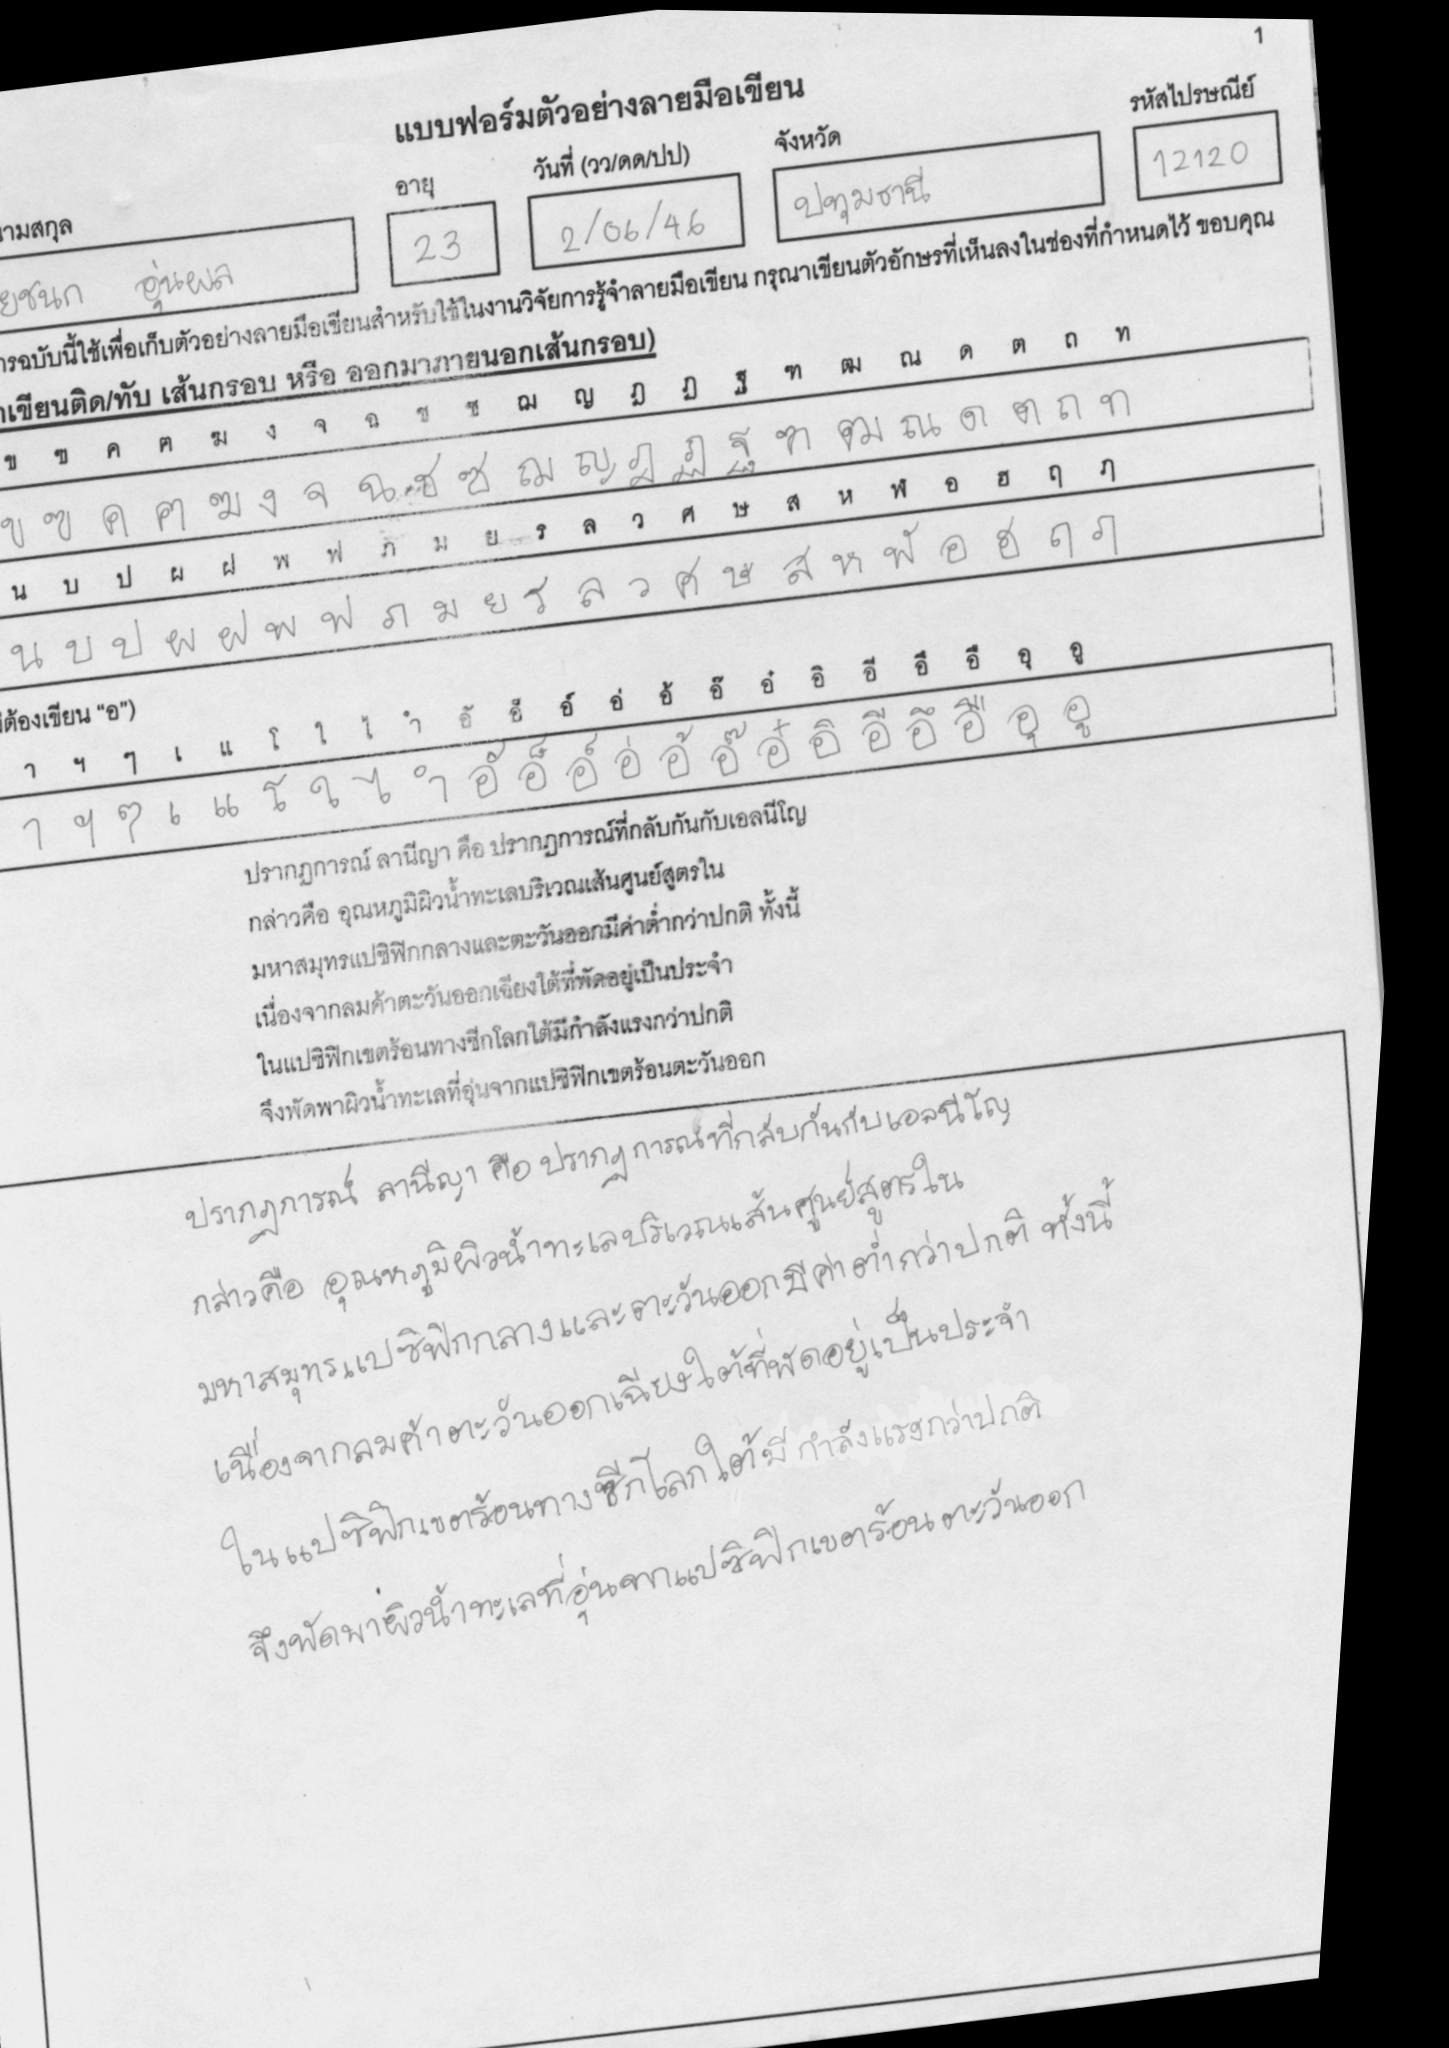 1
แบบฟอร์มตัวอย่างลายมือเขียน
นามสกุล อายุ วันที่ (วว/ดด/ปป) จังหวัด รหัสไปรษณีย์
ยชนก อุ่นผล 23 2/06/46 ปทุมธานี 12120
ารฉบับนี้ใช้เพื่อเก็บตัวอย่างลายมือเขียนสำหรับใช้ในงานวิจัยการรู้จำลายมือเขียน กรุณาเขียนตัวอักษรที่เห็นลงในช่องที่กำหนดไว้ ขอบคุณ
เขียนติด/ทับ เส้นกรอบ หรือ ออกมาภายนอกเส้นกรอบ)
ข ฃ ค ฅ ฆ ง จ ฉ ช ซ ฌ ญ ฎ ฏ ฐ ฑ ฒ ณ ด ต ถ ท
ข ฃ ค ฅ ฆ ง จ ฉ ช ซ ฌ ญ ฎ ฏ ฐ ฑ ฒ ณ ด ต ถ ท
น บ ป ผ ฝ พ ฟ ภ ม ย ร ล ว ศ ษ ส ห ฬ อ ฮ ฤ ภ
น บ ป ผ ฝ พ ฟ ภ ม ย ร ล ว ศ ษ ส ห ฬ อ ฮ ฤ ภ
ต้องเขียน “อ”)
า ฯ ๆ เ แ โ ใ ไ ำ อั อ็ อ์ อ่ อ้ อ๊ อ๋ อิ อี อึ อื อุ อู
า ฯ ๆ เ แ โ ใ ไ ำ อั อ็ อ์ อ่ อ้ อ๊ อ๋ อิ อี อึ อื อุ อู
ปรากฏการณ์ ลานีญา คือ ปรากฏการณ์ที่กลับกันกับเอลนีโญ
กล่าวคือ อุณหภูมิผิวน้ำทะเลบริเวณเส้นศูนย์สูตรใน
มหาสมุทรแปซิฟิกกลางและตะวันออกมีค่าต่ำกว่าปกติ ทั้งนี้
เนื่องจากลมค้าตะวันออกเฉียงใต้ที่พัดอยู่เป็นประจำ
ในแปซิฟิกเขตร้อนทางซีกโลกใต้มีกำลังแรงกว่าปกติ
จึงพัดพาผิวน้ำทะเลที่อุ่นจากแปซิฟิกเขตร้อนตะวันออก
ปรากฏการณ์ ลานีญา คือ ปรากฏการณ์ที่กลับกันกับเอลนีโญ
กล่าวคือ อุณหภูมิผิวน้ำทะเลบริเวณเส้นศูนย์สูตรใน
มหาสมุทรแปซิฟิกกลางและตะวันออกมีค่าต่ำกว่าปกติ ทั้งนี้
เนื่องจากลมค้าตะวันออกเฉียงใต้ที่พัดอยู่เป็นประจำ
ในแปซิฟิกเขตร้อนทางซีกโลกใต้มีกำลังแรงกว่าปกติ
จึงพัดพาผิวน้ำทะเลที่อุ่นจากแปซิฟิกเขตร้อนตะวันออก